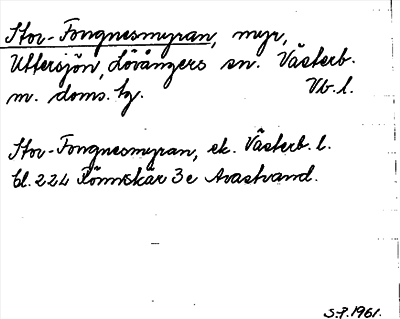 Stor-Fongnesmyran, myr,
Uttersjön, Lövångers sn. Västerb.
m. doms. tg. Vb. l.
Stor-Fongnesmyran, ek. Västerb. l.
bl. 224 Rönnskär 3e Avastrand.
S.P. 1961.